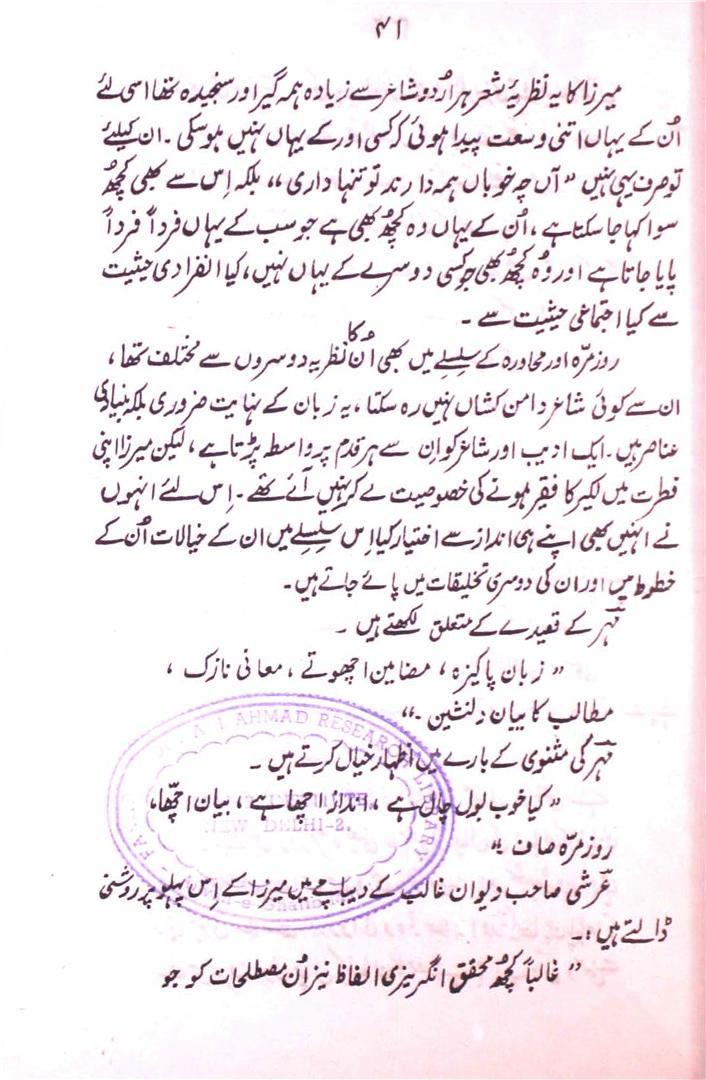 ۴۱
میرزا کا یہ نظریۂ شعر ہر اُردو شاعر سے زیادہ ہمہ گیر اور سنجیدہ تھا اسی لئے
اُن کے یہاں اتنی وسعت پیدا ہوئی کہ کسی اور کے یہاں نہیں ہو سکی ۔ ان کیلئے
تو صرف یہی نہیں ”آں چہ خوباں ہمہ دارند تو تنہا داری“ بلکہ اِس سے بھی کچھ
سوا کہا جا سکتا ہے ، اُن کے یہاں وہ کچھ بھی ہے جو سب کے یہاں فرداً فرداً
پایا جاتا ہے اور وہ کچھ بھی جو کسی دوسرے کے یہاں نہیں ، کیا انفرادی حیثیت
سے کیا اجتماعی حیثیت سے ۔
روزمرّہ اور محاورہ کے سلسلے میں بھی اُن کا نظریہ دوسروں سے مختلف تھا ،
ان سے کوئی شاعر دامن کشاں نہیں رہ سکتا ، یہ زبان کے نہایت ضروری بلکہ بنیادی
عناصر ہیں ۔ ایک ادیب اور شاعر کو اِن سے ہر قدم پر واسطہ پڑتا ہے ، لیکن میرزا اپنی
فطرت میں لکیر کا فقیر ہونے کی خصوصیت لے کر نہیں آئے تھے ۔ اِس لئے انہوں
نے انہیں بھی اپنے ہی انداز سے اختیار کیا اِس سلسلے میں ان کے خیالات اُن کے
خطوط میں اور ان کی دوسری تخلیقات میں پائے جاتے ہیں ۔
مہر کے قصیدے کے متعلق لکھتے ہیں ۔
”زبان پاکیزہ ، مضامین اچھوتے ، معانی نازک ،
مطالب کا بیان دلنشین ۔“
مہر کی مثنوی کے بارے میں اظہار خیال کرتے ہیں ۔
”کیا خوب بول چال ہے ، انداز اچھا ہے ، بیان اچھّا ،
روزمرّہ صاف ۔“
عرشی صاحب دیوان غالب کے دیباچے میں میرزا کے اِس پہلو پر روشنی
ڈالتے ہیں :۔
”غالباً کچھ محقق انگریزی الفاظ نیز اُن مصطلحات کو جو
A I AHMAD RESEARCH LIBRARY
NEW DELHI-2.